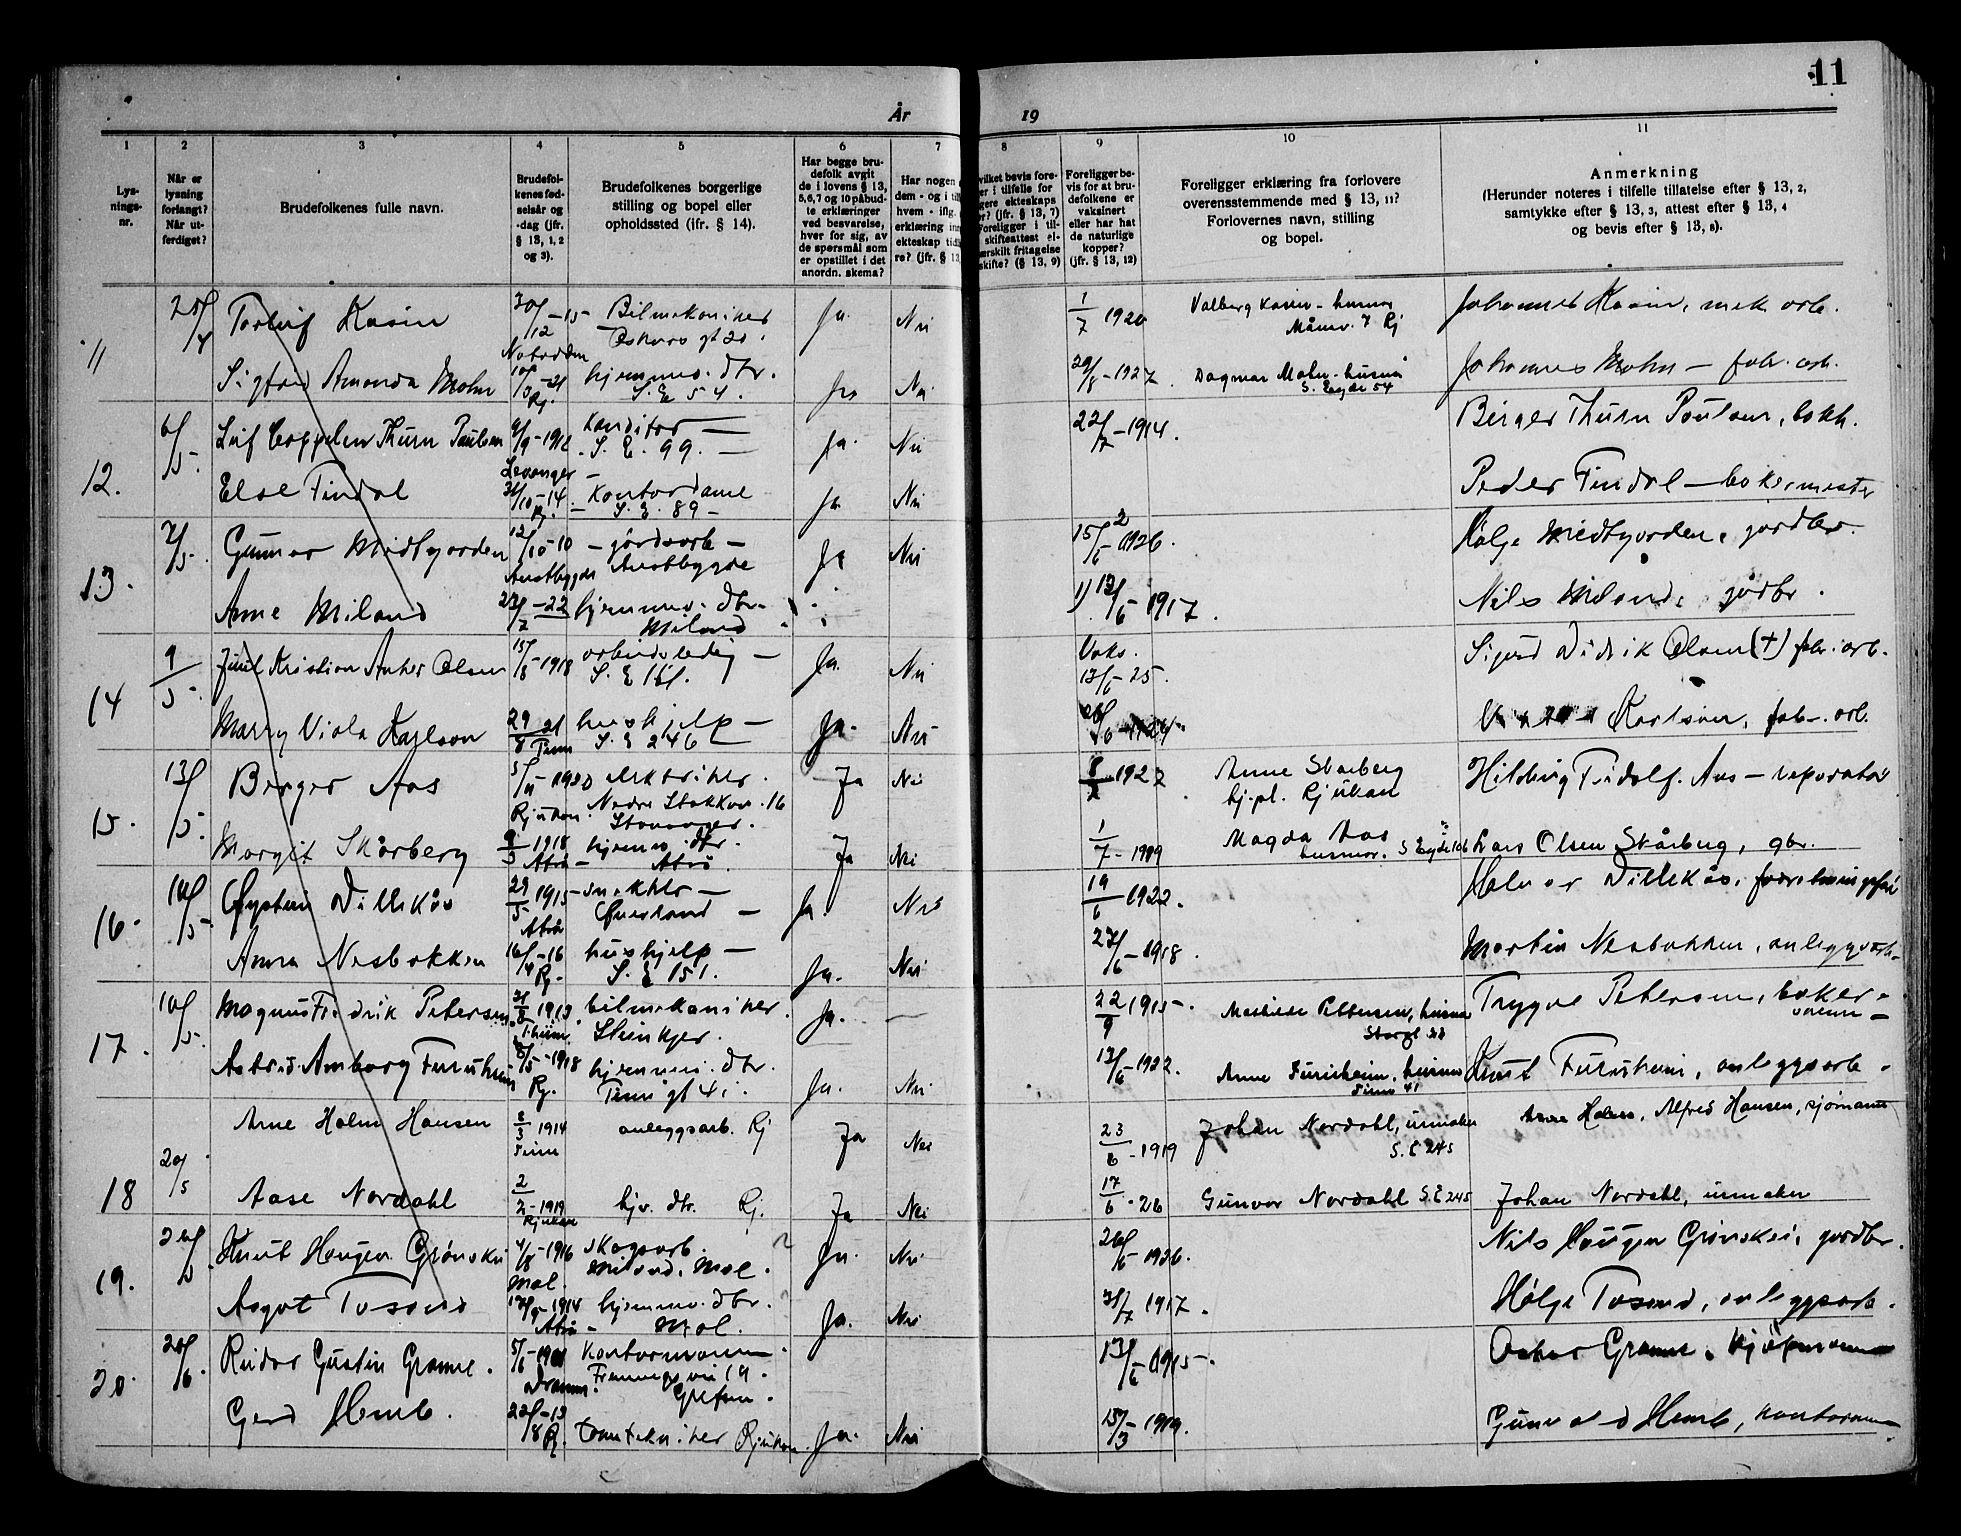 11
År
19
1
2
3
4
5
6
7
8
9
10
11
Lys-
nings-
nr.
Når er
lysning
forlangt?
Når ut-
ferdiget?
Brudefolkenes fulle navn.
Brudefol-
kenes fød-
selsår og
-dag (jfr.
§ 13, 1, 2
og 3).
Brudefolkenes borgerlige
stilling og bopel eller
opholdssted (jfr. § 14).
Har begge bru-
defolk avgit
de i lovens § 13,
5, 6, 7 og 10 påbud-
te erklæringer
ved besvarelse,
hver for sig, av
de spørsmål som
er opstillet i det
anordn. skema?
Har nogen
dem - og i til
hvem - iflg.
erklæring inn
ekteskap tid
re? (jfr. § 13,
vilket bevis fore-
er i tilfelle for
gere ekteskaps
r? (jfr. § 13, 7)
Foreligger i til-
skifteattest el-
ærskilt fritagelse
skifte? (§ 13, 9)
Foreligger be-
vis for at bru-
defolkene er
vaksinert
eller har hat
de naturlige
kopper?
(jfr. § 13, 12)
Foreligger erklæring fra forlovere
overensstemmende med § 13, 11?
Forlovernes navn, stilling
og bopel.
Anmerkning
(Herunder noteres i tilfelle tillatelse efter § 13, 2,
samtykke efter § 13, 3, attest efter § 13, 4
og bevis efter § 13, 8).
11
Kasin
30/12 -15-
Bilmekaniker
Ja
Nei
1/7 1920
Valborg Kasin - husmor
Johannes Kasin, mek arb.
Månev. 7 Rj
Notodden
Sigfrid Amanda Mohn
10/3 -21
Rj.
hjemmev. dtr.
S. E 54.
Ja
Nei
-1927.
Dagmar Mohn - husmor
S. Eyde 54
Johannes Mohn - fabr. arb.
12.
6/5-
Leif Coppelen Thurn Paulsen
9/9-1912
Konditor
S. E. 99.
Ja.
Nei
22/7-1914.
Birger Thurn Poulsen, bokh.
Levanger
Else Tindal
31/10-14
Rj.
Kontordame
S. E. 89 -
Ja
Nei
Peder Tindal - bakermester
13.
7/5-
Gunnar Midtgarden
12/10-10
- gårdsarb -
Austbygde
Ja
Nei
15/6 1926.
Hølje Midtgarden, gardbr.
Anne Miland
23/7 -22
hjemmev. dtr.
Miland
1) 13/6 1917.
Nils Miland, gardbr.
14
9/5-
Juul Kristian Anker Olsen
15/8-1918
arbeidsledig -
S. E 161.
Ja.
Nei
Vaks.
13/6-25.
Sigurd Didrik Olsen (+) fabr. arb.
Marry Viola Karlson
29/8 21
Tinn
hushjelp -
S. E 246
Ja.
Nei
Karlson, fabr. arb.
15.
13/5-
Birger Aas
5/11 1920
Rjukan.
elektriker.
Nedre Stokkav. 16
Stavanger.
Ja
Nei
8/2 1927
Anne Skårberg
hj.pl. Rjukan
Hilding Fridolf Aas - reparatør
Margit Skårberg
9/3 1918
Atrå -
hjemmev. dtr.
Atrå
Ja
Nei
1/7 - 1919
Magda Aas
husmor. S Eyde 106
Lars Olsen Skårberg, gbr.
16.
14/5-
Øystein Dillekås
29/5 1915-
Atrå
snekker -
Øverland -
Ja.
Nei
19/6 1922.
Halvor Dillekås, forretningsfør
Anna Nesbakken
16/4 -16
Rj.
hushjelp -
S. E 151.
Ja.
Nei
27/6 -1918.
Martin Nesbakken, anleggsarb.
17.
10/5-
Magnus Fredrik Petersen
1913
bilmekaniker.
Steinkjer.
Ja.
—
22/9 1915-
Mathilde Pettersen, husmor
Storgt 28
Trygve Petersen, baker-
svenn -
Astrid Amborg Furuheim
8/5 -1918
Rj.
hjemmev. dtr.
Tinngt 41.
Ja.
Nei
13/6-1922.
Anne Furuheim, husmor
Tinngt 41
Knut Furuheim, anleggsarb.
18
20/5
Arne Holm Hansen
8/3 1914
Tinn
anleggsarb. Rj
Ja
Nei
23/6 -1919
Johan Nordahl, urmaker
S. E 245
Arne Holm, Alfred Hansen, sjømann
Aase Nordahl
2/2 -1919
Rjukan
hjv. dtr. Rj.
Ja
Nei
17/6 - 26
Gunvor Nordahl S. E 245
Johan Nordahl, urmaker
19.
Knut Haugen Grønskei
4/8-1916
Mæl.
skogsarb.
Miland, Mæl.
?
Ja.
Nei
26/6 1926.
Nils Haugen Grønskei, gardbr.
Asgot Tosand
-1914
Atrå -
hjemmev. dtr.
Mæl.
?
Ja.
Nei
31/7 1917.
Hølje Tosand, anleggsarb.
20.
20/6.
Reidar Gustin Gramne.
5/6 -1901
Dramm.
Kontormann
19.
Grefsen.
13/6 1915-.
Oskar Gramne. Kjøpmann
Gerd Hemb.
22/8-13
Rj.
tanntekniker Rjukan.
Ja.
Nei
15/3-1919.
Gunvald Hemb, kontormann